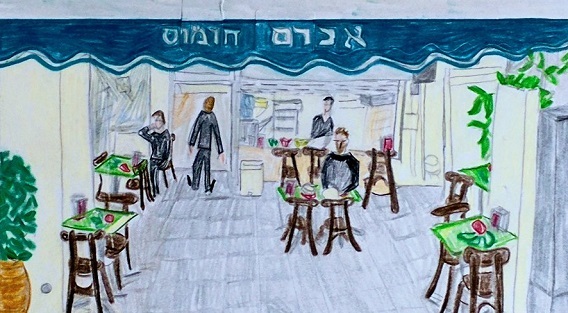 אכרם חומוס